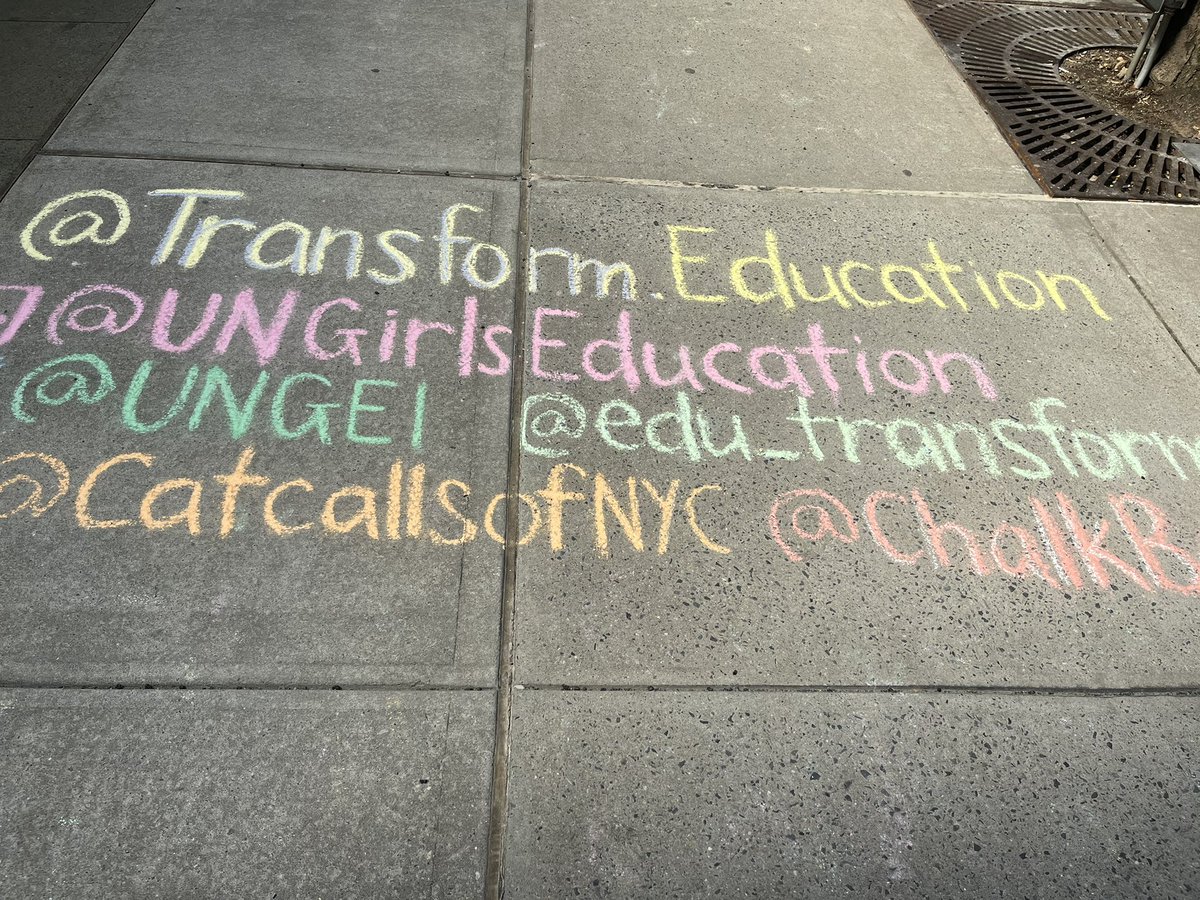 @Transform.Education
@UNGirlsEducation
@UNGEI @edu_transform
@CatcallsofNYC @ChalkB